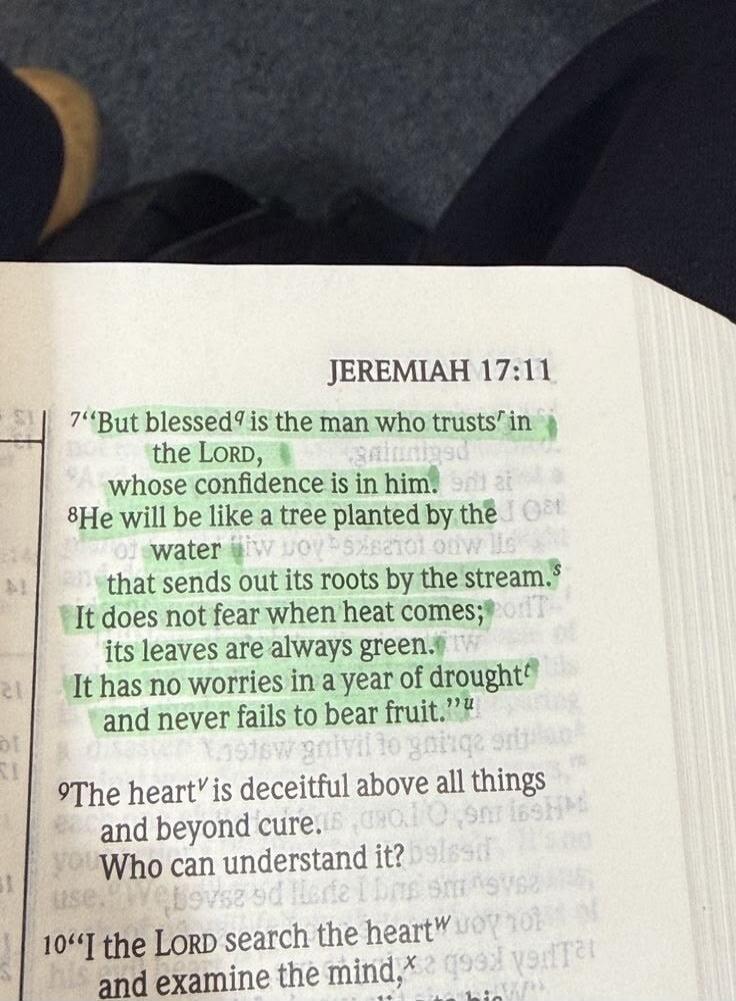 JEREMIAH 17:11
7“But blessedq is the man who trustsr in
the LORD,
whose confidence is in him.
8He will be like a tree planted by the
water
that sends out its roots by the stream.s
It does not fear when heat comes;
its leaves are always green.
It has no worries in a year of drought t
and never fails to bear fruit.”u
9The heartv is deceitful above all things
and beyond cure.
Who can understand it?
10“I the LORD search the heartw
and examine the mind,x